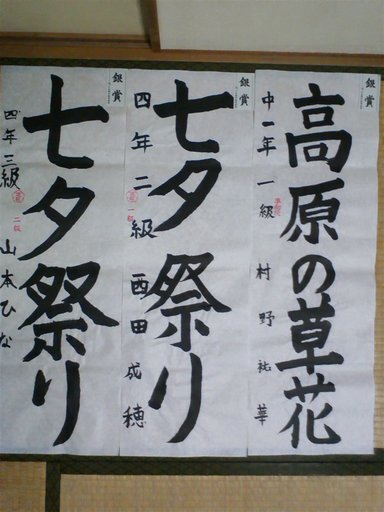 銀賞
高原の草花
中一年 一級 村野祐華
銀賞
七夕祭り
四年 二級 西田成穂
一級
銀賞
七夕祭り
四年 三級 山本ひな
二級